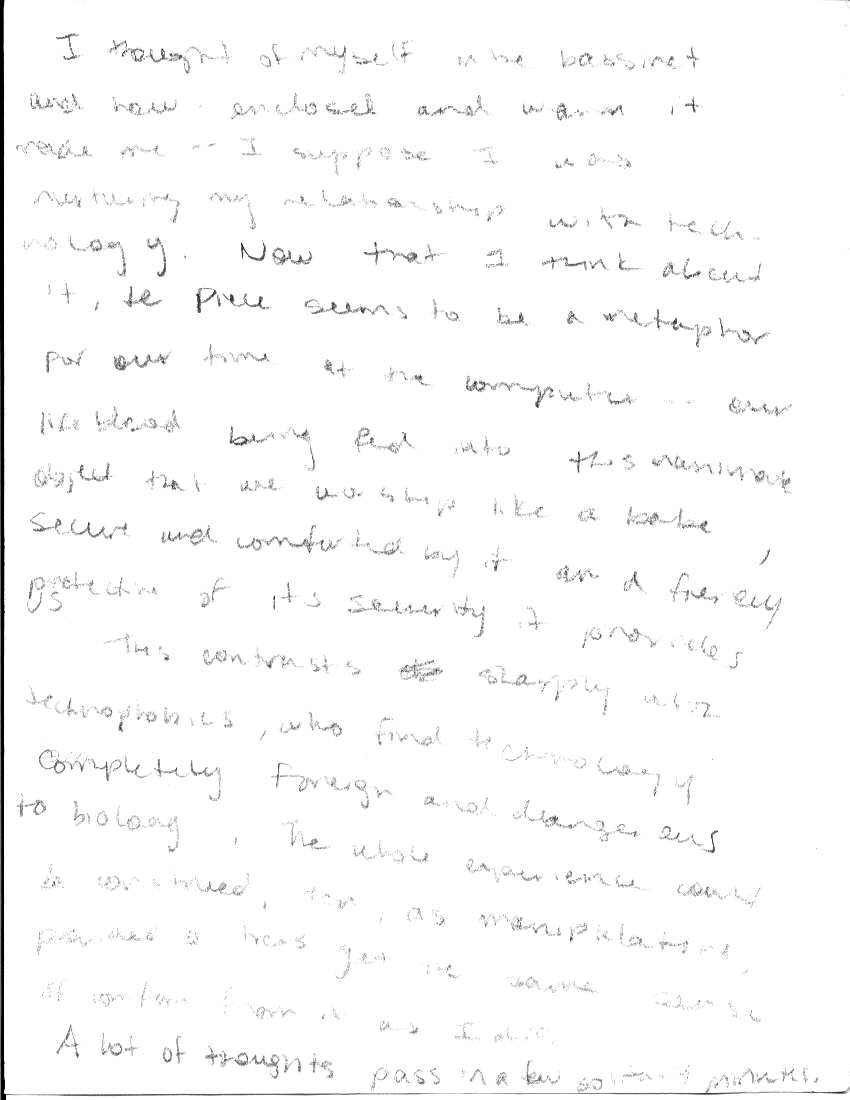 I thought of myself in the bassinet
and how enclosed and warm it
made me -- I suppose I was
nurturing my relationship with tech-
nology. Now that I think about
it, the piece seems to be a metaphor
for our time at the computer -- our
lifeblood being fed into this inanimate
object that we worship like a babe,
secure and comforted by it and fiercely
protective of its security it provides
us
This contrasts sharply with
technophobics, who find technology
completely foreign and dangerous
to biology. The whole experience could
be construed, too, as manipulative,
provided others get the same sense
of comfort from it as I did.
A lot of thoughts pass in a few solitary minutes.